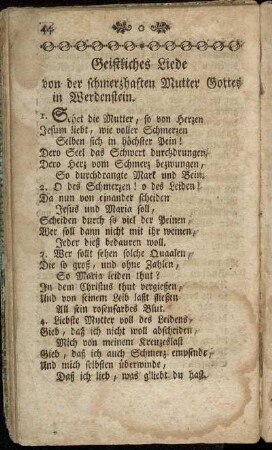 44
Geistliches Liede
von der schmerzhaften Mutter Gottes
in Werdenstein.
1. Sehet die Mutter, so von Herzen
Jesum liebt, wie voller Schmerzen
Selben sich in höchster Pein!
Dero Seel das Schwert durchdrungen,
Dero Herz vom Schmerz bezwungen,
So durchdrangte Mark und Bein.
2. O des Schmerzen! o des Leiden!
Da nun von einander scheiden
Jesus und Maria soll,
Scheiden durch so viel der Peinen,
Wer soll dann nicht mit ihr weinen,
Jeder dieß bedauren woll.
3. Wer sollt sehen solche Quaalen,
Die so groß, und ohne Zahlen,
So Maria leiden thut?
In dem Christus thut vergießen,
Und von seinem Leib laßt fließen
All sein rosenfarbes Blut.
4. Liebste Mutter voll des Leidens,
Gieb, daß ich nicht woll abscheiden,
Mich von meinem Kreuzeslast
Gieb, daß ich auch Schmerz empfinde,
Und mich selbsten überwinde,
Daß ich lied, was g'liebt du hast.